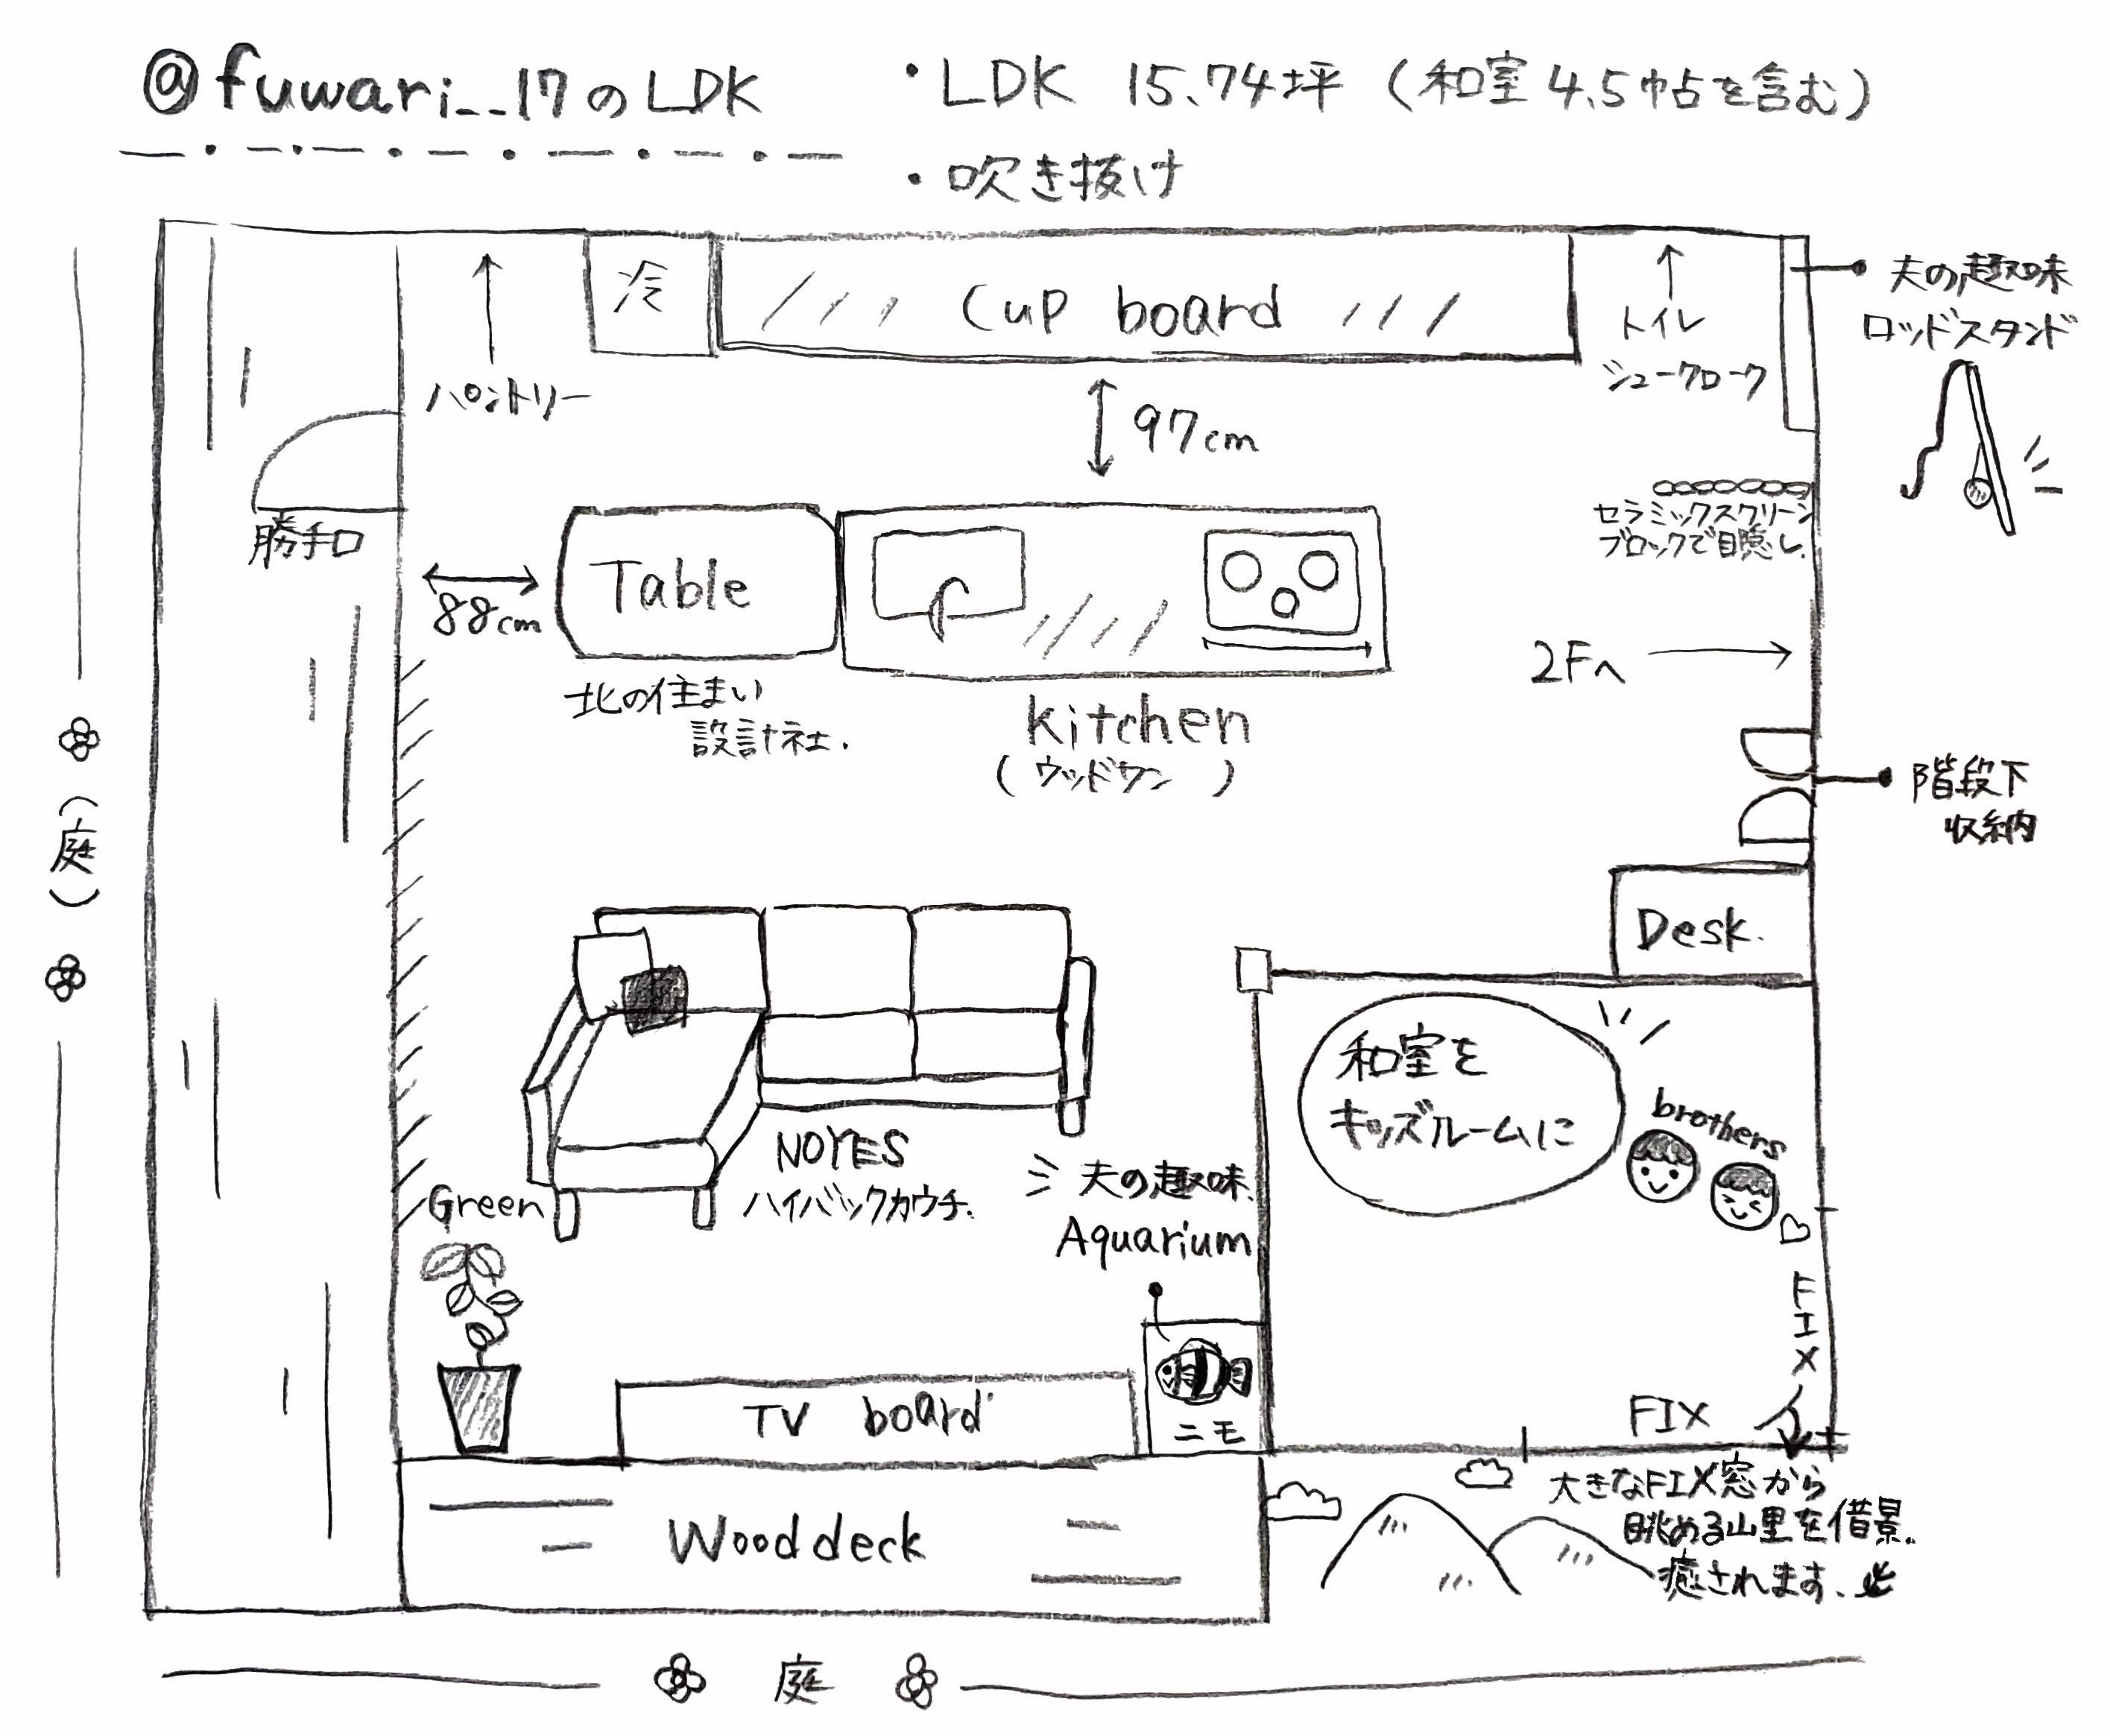 @fuwari__17のLDK
・LDK 15.74坪（和室4.5帖を含む）
・吹き抜け
パントリー
冷
Cup board
トイレ
シュークローク
夫の趣味
ロッドスタンド
97cm
勝手口
88cm
Table
北の住まい
設計社.
kitchen
(ウッドワン)
セラミックスクリーン
ブロックで目隠し.
2Fへ
階段下
収納
Desk.
(庭)
NOYES
ハイバックカウチ.
Green
夫の趣味.
Aquarium
ニモ
TV board
和室を
キッズルームに
brothers
FIX
FIX
大きなFIX窓から
眺める山里を借景.
癒されます.
Wooddeck
庭